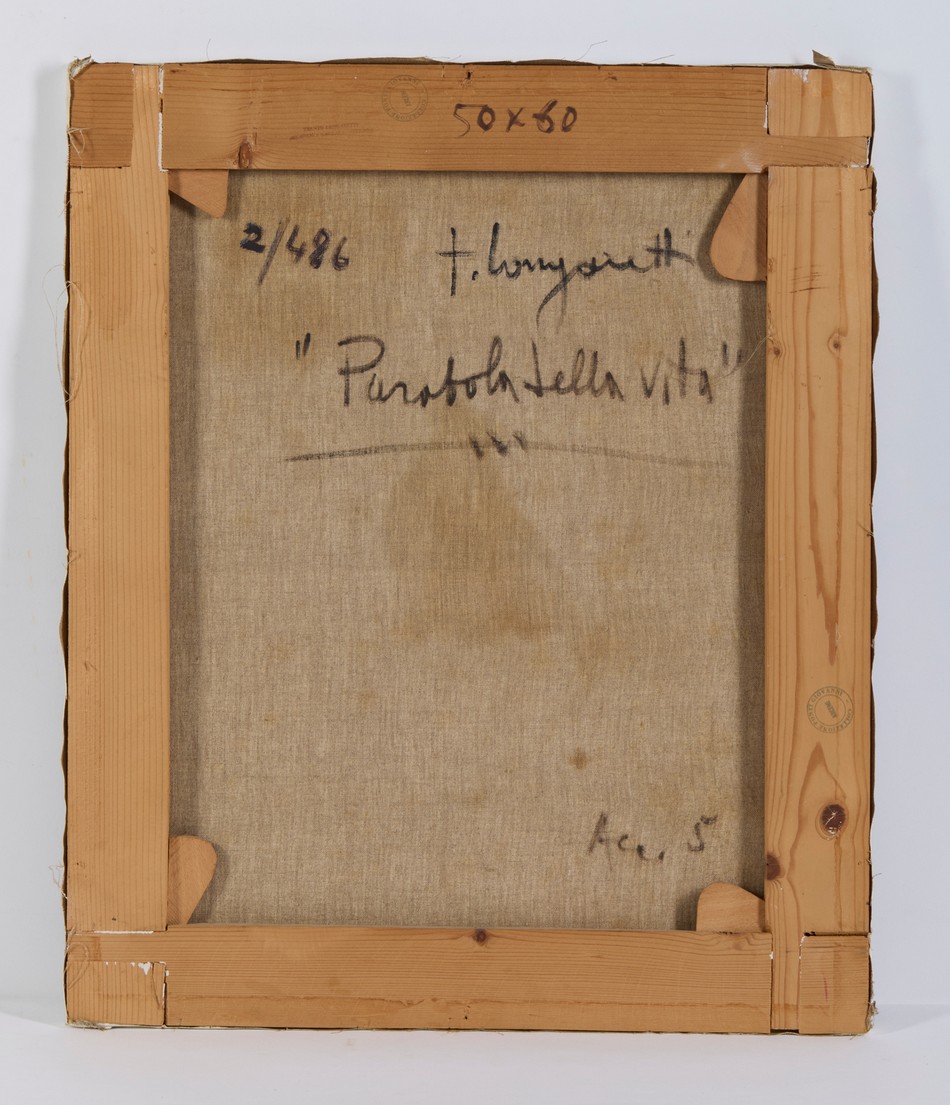 50x60
2/486 t. Longaretti
"Parabola della vita"
Acc. 5